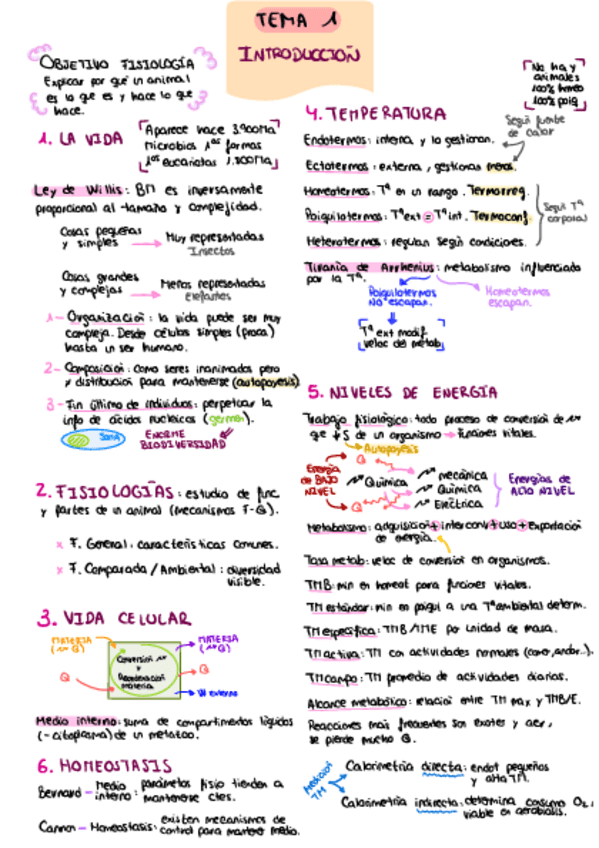 TEMA 1
INTRODUCCIÓN
OBJETIVO FISIOLOGÍA
Explicar por qué un animal
es lo que es y hace lo que
hace.
1. LA VIDA
Aparece hace 3.900Ma
Microbios 1as formas
1os eucariotas 1.800Ma
Ley de Willis: BM es inversamente
proporcional al tamaño y complejidad.
Cosas pequeñas
y simples → Muy representadas
Insectos
Cosas grandes
y complejas → Menos representadas
Elefantes
1- Organización: la vida puede ser muy
compleja. Desde células simples (proca)
hasta un ser humano.
2- Composición: como seres inanimados pero
≠ distribución para mantenerse (autopoyesis)
3- Fin último de individuos: perpetuar la
info de ácidos nucleicos (germen).
Soma
ENORME
BIODIVERSIDAD
2. FISIOLOGÍAS: estudio de func
y partes de un animal (mecanismos F-Q).
x F. General: características comunes.
x F. Comparada / Ambiental: diversidad
visible.
3. VIDA CELULAR
MATERIA
Q
Conversión
y
Reordenación
materia
MATERIA
Q
W externo
Medio interno: suma de compartimentos líquidos
(-citoplasma) de un metazoo.
6. HOMEOSTASIS
Bernard - Medio interno: parámetros fisio tienden a
mantenerse ctes.
Cannon - Homeostasis: existen mecanismos de
control para mantener medio.
No hay
animales
100% homeo
100% poiq
4. TEMPERATURA
Según fuente
de calor
Endotermos: interna y la gestionan.
Ectotermos: externa, gestionan menos.
Homeotermos: Tª en un rango. Termorreg.
Poiquilotermos: Tªext = Tªint. Termoconf.
Heterotermos: regulan según condiciones.
Según Tª
corporal
Tiranía de Arrhenius: metabolismo influenciado
por la Tª.
Poiquilotermos
No escapan.
Homeotermos
escapan.
Tª ext modif
veloc del metab
5. NIVELES DE ENERGÍA
Trabajo fisiológico: todo proceso de conversión de
que ↓S de un organismo → funciones vitales.
Autopoyesis
Energía
de BAJO
NIVEL
Q
Química
Q
mecánica
Química
Eléctrica
Energías de
ALTO NIVEL
Metabolismo: adquisición + interconv + uso + exportación
de energía.
Tasa metab: veloc de conversión en organismos.
TMB: min en homeot para funciones vitales.
TM estándar: min en poiqui a una Tª ambiental determ.
TM específica: TMB/TME por unidad de masa.
TM activa: TM con actividades normales (comer, andar..).
TM campo: TM promedio de actividades diarias.
Alcance metabólico: relación entre TM max y TMB/E.
Reacciones más frecuentes son exoter y aer,
se pierde mucho Q.
Medición
TM
Calorimetría directa: endot pequeños
y alta TM.
Calorimetría indirecta: determina consumo O2,
viable en aerobiosis.